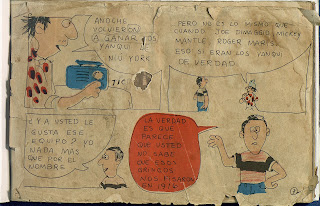 ANOCHE
VOLVIERON
A GANAR LOS
YANQUI
NIU YORK
PERO NO ES LO MISMO QUE
CUANDO JOE DIMAGGIO, MICKEY
MANTLE, ROGER MARIS...
ESO SI ERAN LOS YANQUI
DE VERDAD
¿Y A USTED LE
GUSTA ESE
EQUIPO? YO
NADA MAS
QUE POR EL
NOMBRE
LA VERDAD
ES QUE
PARECE
QUE USTED
NO SABE
QUE ESOS
GRINGOS
NOS